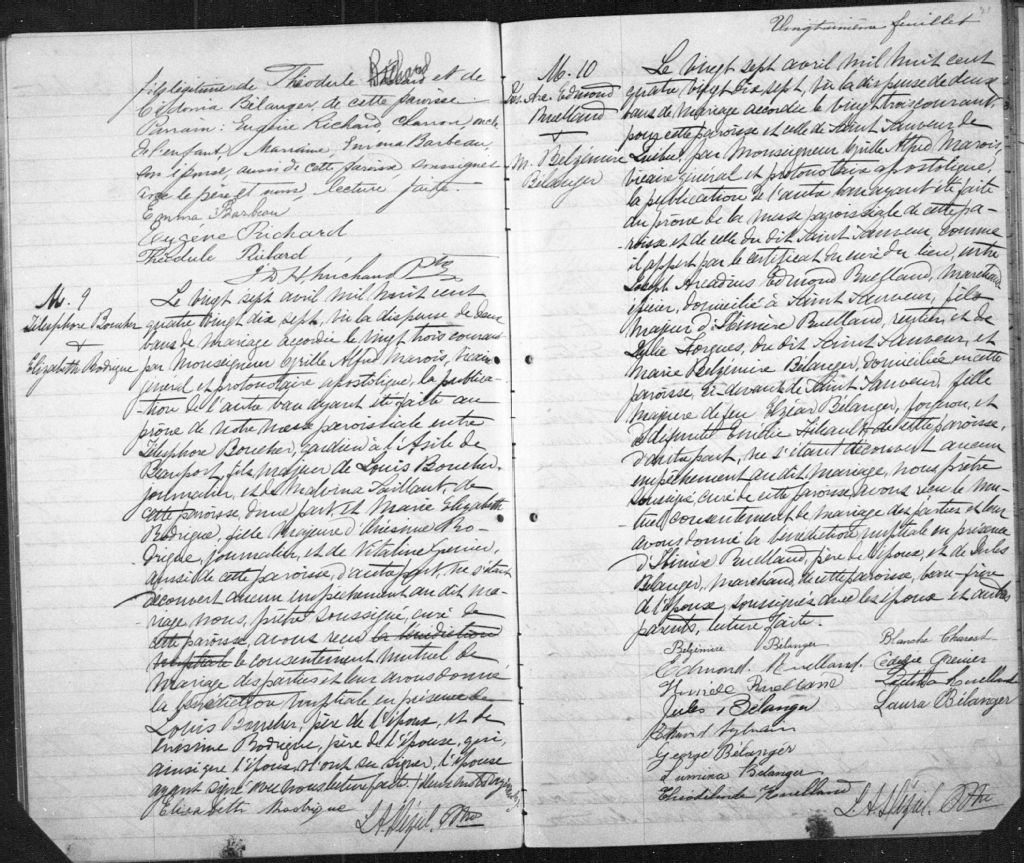 fils légitime de Théodule Richard et de
Victoria Bélanger, de cette paroisse.
Parrain: Eugène Richard, charron, oncle
de l'enfant, Marraine, Emma Barbeau,
son épouse, aussi de cette paroisse soussignés
avec le père et nous, lecture faite.
Emma Barbeau
Eugène Richard
Théodule Richard
Ptre
M. 9
Télesphore Boucher
+
Elizabeth Rodrigue
Le vingt sept avril mil huit cent
quatre vingt dix sept, vu la dispense de deux
bans de mariage accordée le vingt trois courant
par Monseigneur Cyrille Alfred Marois, Vicaire
général et protonotaire apostolique, la publica-
tion de l'autre ban ayant été faite au
prône de notre messe paroissiale entre
Télesphore Boucher, gardien à l'Asile de
Beauport, fils majeur de Louis Boucher,
journalier, et de Malvina Vaillant, de
cette paroisse, d'une part, et Marie Elizabeth
Rodrigue, fille majeure d'Onésime Ro-
drigue, journalier, et de Vitaline Grenier,
aussi de cette paroisse, d'autre part, ne s'étant
découvert aucun empêchement au dit ma-
riage nous, prêtre soussigné, curé de
cette paroisse, avons reçu la bénédiction
nuptiale le consentement mutuel de
mariage des parties et leur avons donné
la bénédiction nuptiale en présence de
Louis Boucher, père de l'époux, et de
Onésime Rodrigue, père de l'épouse, qui,
ainsi que l'époux, n'ont su signer, l'épouse
ayant signé avec nous lecture faite. (deux mots rayés
Elisabeth Rodrigue
Ptre
Vingtunième feuillet
M. 10
Jos. Arc. Edmond
Ruelland
+
M. Belzémire
Bélanger
Le vingt sept avril mil huit cent
quatre vingt dix sept, vu la dispense de deux
bans de mariage accordée le vingt trois courant
pour cette paroisse et celle de Saint Sauveur de
Québec, par Monseigneur Cyrille Alfred Marois,
vicaire général et protonotaire apostolique,
la publication de l'autre ban ayant été faite
au prône de la messe paroissiale de cette pa-
roisse et de celle du dit Saint Sauveur, comme
il appert par le certificat du curé du lieu, entre
Joseph Arcadius Edmond Ruelland, marchand
épicier, domicilié à Saint Sauveur, fils
majeur d'Irénée Ruelland, rentier, et de
Julie Forgues, du dit Saint Sauveur, et
Marie Belzémire Bélanger, domiciliée en cette
paroisse, ci-devant de Saint Sauveur, fille
majeure de feu Elzéar Bélanger, forgeron, et
de défunte Emilie de cette paroisse,
d'autre part, ne s'étant découvert aucun
empêchement au dit mariage, nous prêtre
soussigné, curé de cette paroisse avons reçu le mu-
tuel consentement de mariage des parties et leur
avons donné la bénédiction nuptiale en présence
d'Irénée Ruelland, père de l'époux, et de Jules
Bélanger, marchand, de cette paroisse, beau-frère
de l'épouse, soussignés avec les époux et autres
parents, lecture faite.
Belzémire Bélanger
Blanche Charest
Edmond Ruelland
Grenier
Irénée Ruelland
Ruelland
Jules Bélanger
Laura Bélanger
Sylvain
George Bélanger
Lumina Bélanger
Théodelinde Ruelland
Ptre